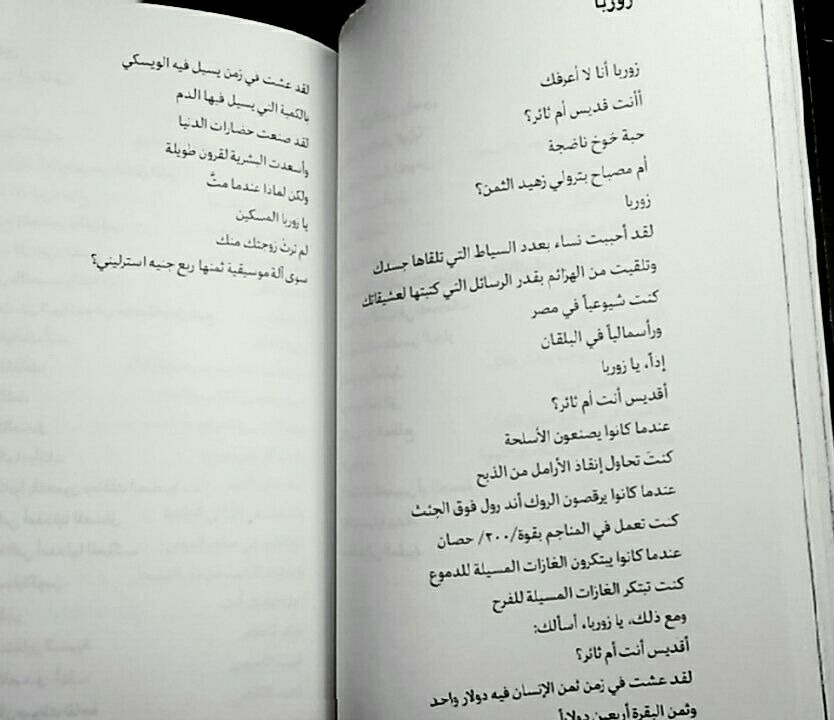 زوربا
زوربا أنا لا أعرفك
أأنت قديس أم ثائر؟
حبة خوخ ناضجة
أم مصباح بترولي زهيد الثمن؟
زوربا
لقد أحببت نساء بعدد السياط التي تلقاها جسدك
وتلقيت من الهزائم بقدر الرسائل التي كتبتها لعشيقاتك
كنت شيوعياً في مصر
ورأسمالياً في البلقان
إذاً، يا زوربا
أقديس أنت أم ثائر؟
عندما كانوا يصنعون الأسلحة
كنتَ تحاول إنقاذ الأرامل من الذبح
عندما كانوا يرقصون الروك أند رول فوق الجثث
كنت تعمل في المناجم بقوة/٢٠٠/ حصان
عندما كانوا يبتكرون الغازات المسيلة للدموع
كنت تبتكر الغازات المسيلة للفرح
ومع ذلك، يا زوربا، أسألك:
أقديس أنت أم ثائر؟
لقد عشت في زمن ثمن الإنسان فيه دولار واحد
وثمن البقرة أربعين دولاراً
لقد عشت في زمن يسيل فيه الويسكي
بالكمية التي يسيل فيها الدم
لقد صنعت حضارات الدنيا
وأسعدت البشرية لقرون طويلة
ولكن لماذا عندما متَّ
يا زوربا المسكين
لم ترث زوجتك منك
سوى آلة موسيقية ثمنها ربع جنيه استرليني؟